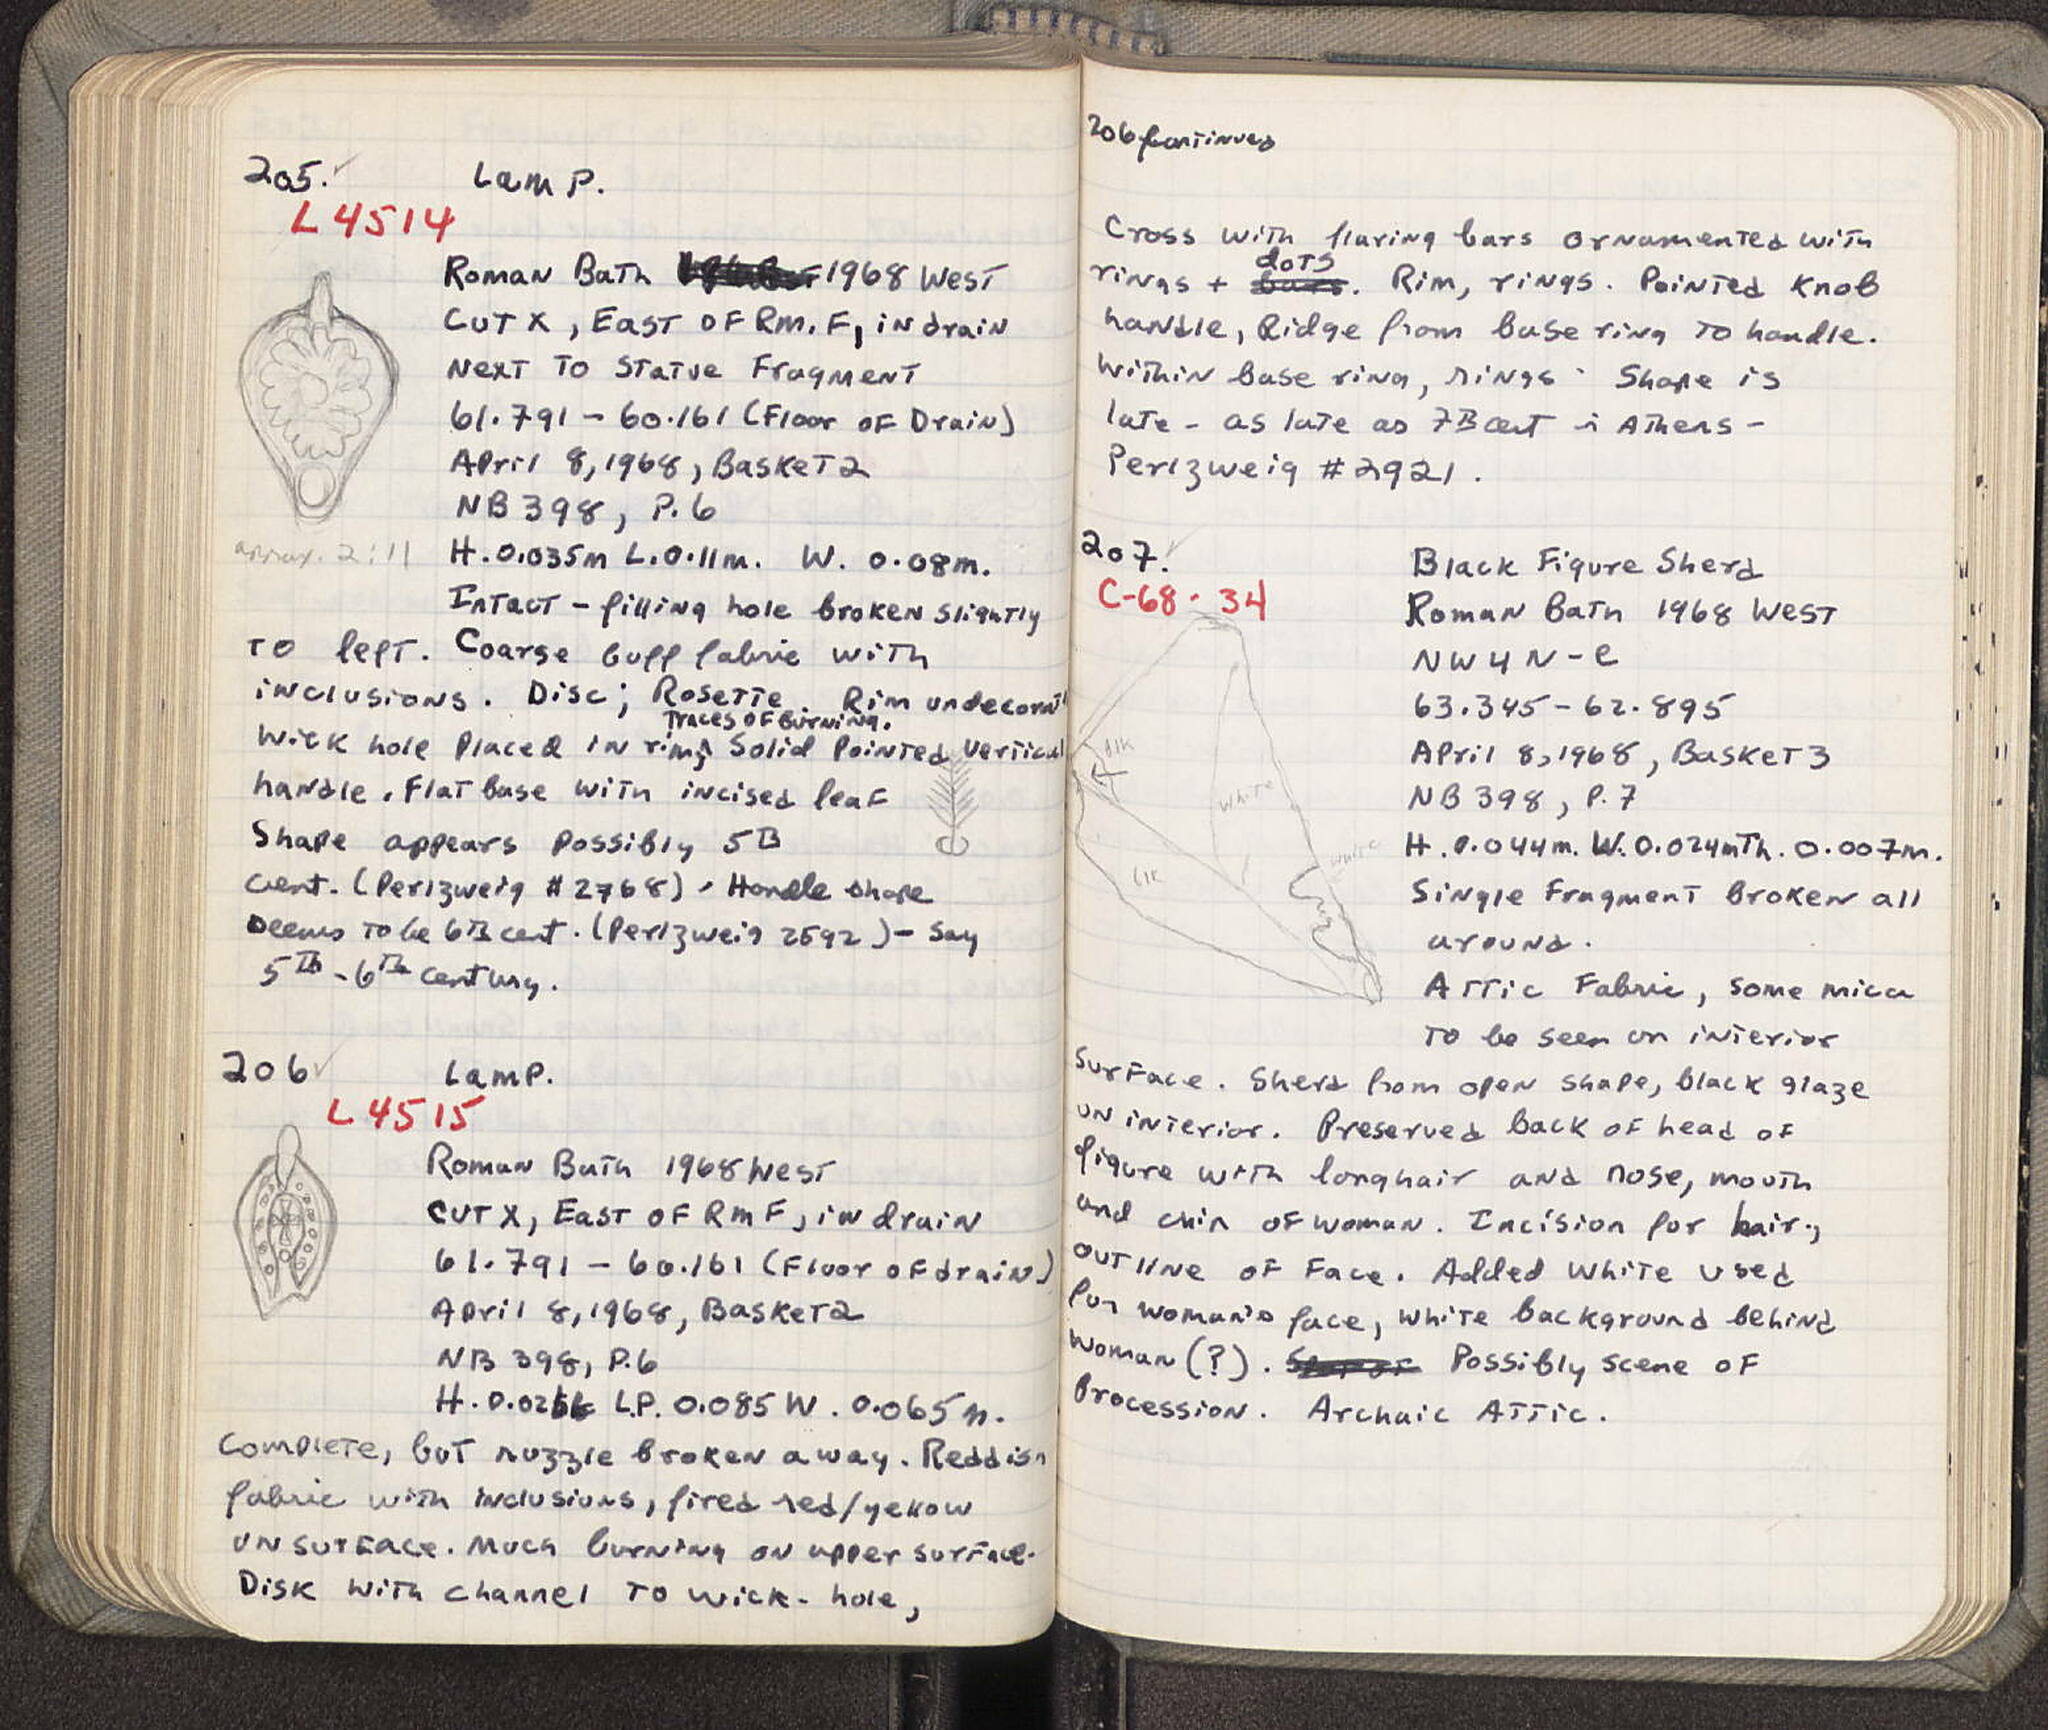 205.
Lamp.
L 4514
Roman Bath 1968 West
Cut X, East of Rm. F, in drain
next to statue fragment
61.791 – 60.161 (Floor of Drain)
April 8, 1968, Basket 2
NB 398, P. 6
approx. 2:11
H. 0.035m L. 0.11m. W. 0.08m.
Intact – filling hole broken slightly
to left. Coarse buff fabric with
inclusions. Disc; Rosette. Rim undecorat
Traces of burning.
Wick hole placed in rim. Solid pointed vertical
handle. Flat base with incised leaf
Shape appears possibly 5th
cent. (Perlzweig # 2768). Handle shape
seems to be 6th cent. (Perlzweig 2592) – say
5th – 6th century.
206
Lamp.
L 4515
Roman Bath 1968 West
Cut X, East of Rm F, in drain
61.791 – 60.161 (Floor of drain)
April 8, 1968, Basket 2
NB 398, P. 6
H. 0.026 L.P. 0.085 W. 0.065 m.
Complete, but nozzle broken away. Reddish
fabric with inclusions, fired red/yellow
on surface. Much burning on upper surface.
Disk with channel to wick-hole,
206 continued
Cross with flaring bars ornamented with
dots
rings + bars. Rim, rings. Pointed knob
handle, Ridge from base ring to handle.
Within base ring, rings. Shape is
late – as late as 7th cent in Athens –
Perlzweig # 2921.
207.
Black Figure Sherd
C-68-34
Roman Bath 1968 West
NW 4 N-e
63.345 – 62.895
April 8, 1968, Basket 3
NB 398, P. 7
H. 0.044m. W. 0.024m Th. 0.007m.
Single Fragment broken all
around.
Attic Fabric, some mica
to be seen on interior
blk
white
white
blk
surface. Sherd from open shape, black glaze
on interior. Preserved back of head of
figure with long hair and nose, mouth
and chin of woman. Incision for hair,
outline of face. Added white used
for woman's face, white background behind
woman (?). Possibly scene of
Procession. Archaic Attic.